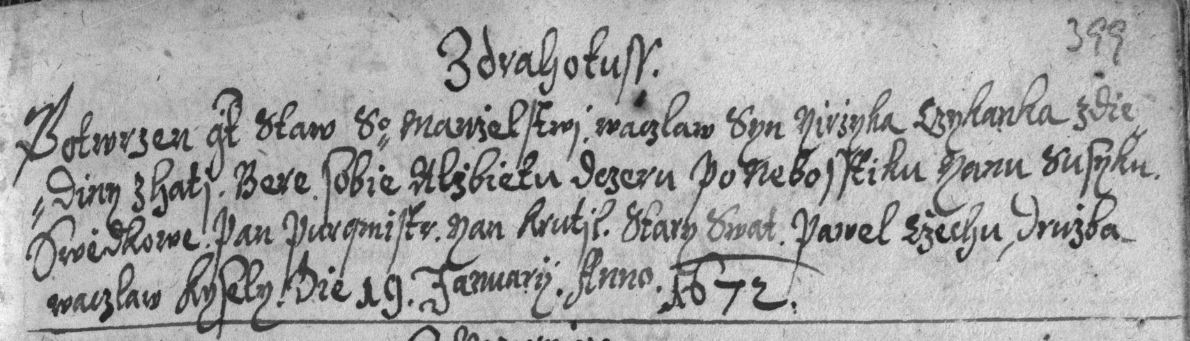 399
Zdrahotuss.
Potwrzen gt Staw Sº Manželstwj. waczlaw Syn Yiržyka Czykanka z die
„diny z hatj. Bere sobie Alžbietu dczeru Po Nebosstiku Yanu Susyku.
Swědkowe. Pan Purgmistr. Yan Krutil. Stary Swat. Pawel Czechu, Družba
waczlaw Kysely. Die 19. January. Anno. 1672.